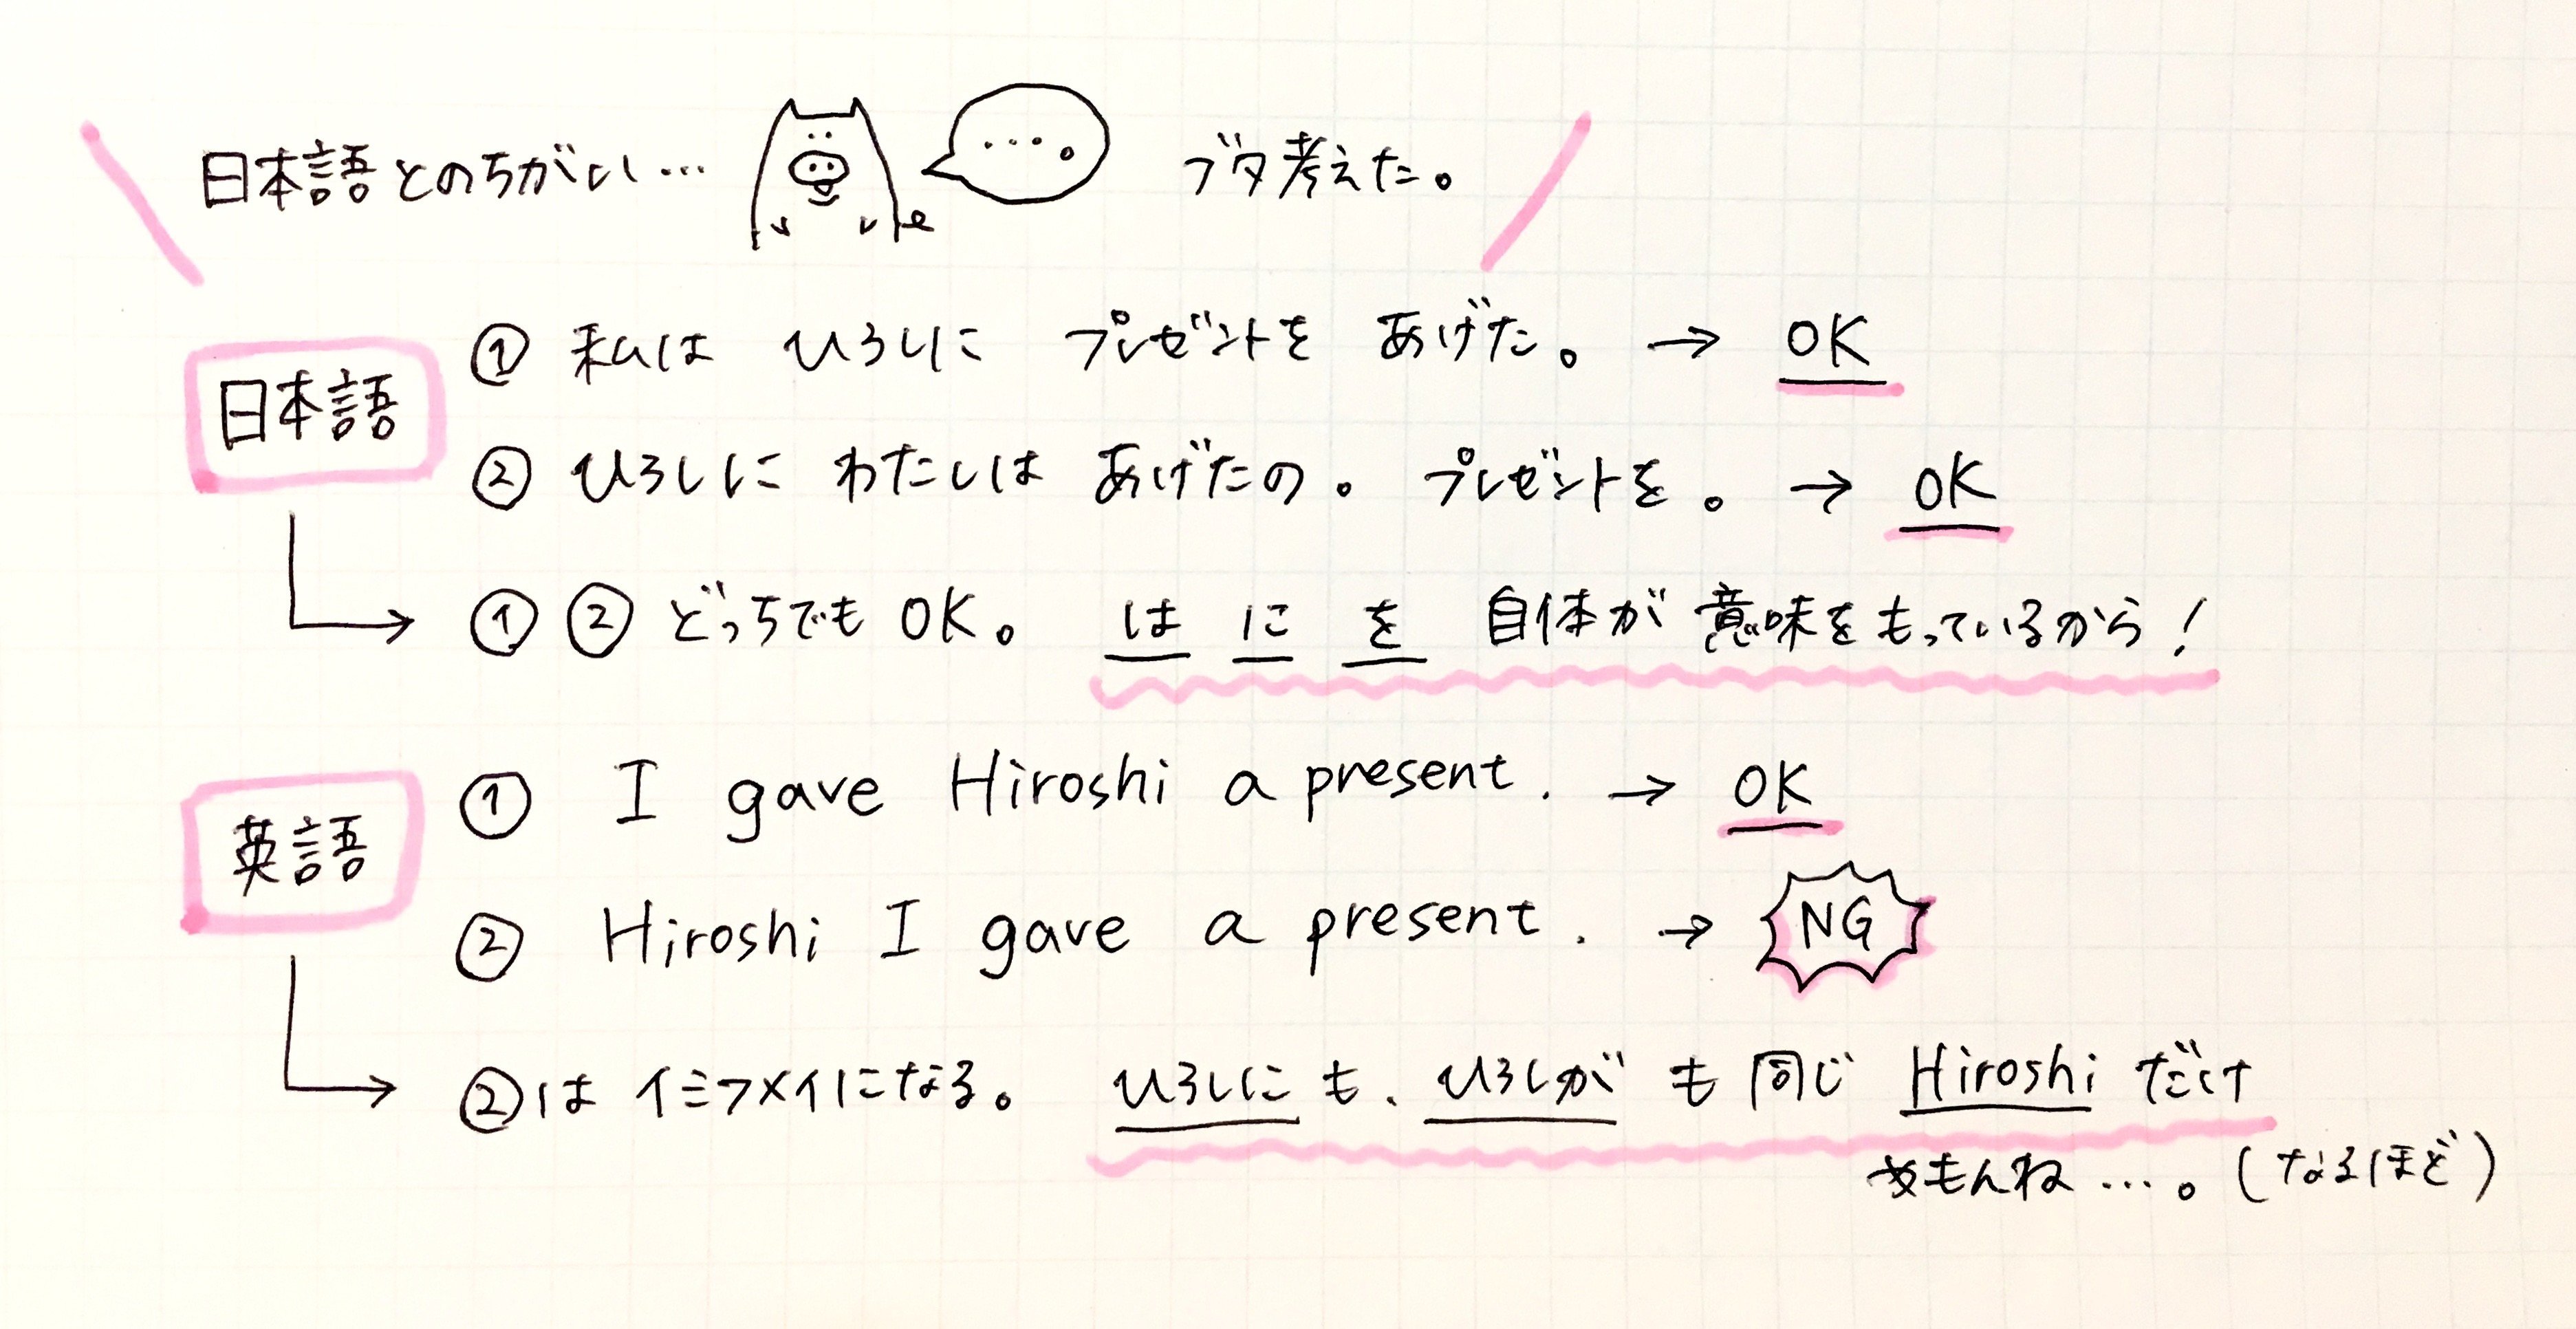 日本語とのちがい… ・・・。 ブタ考えた。
日本語
① 私は ひろしに プレゼントを あげた。 → OK
② ひろしに わたしは あげたの。 プレゼントを。 → OK
① ② どっちでも OK。 は に を 自体が 意味をもっているから!
英語
① I gave Hiroshi a present. → OK
② Hiroshi I gave a present. → NG
②は イミフメイになる。 ひろしにも、ひろしがも同じ Hiroshi だけ
もんね…。(なるほど)